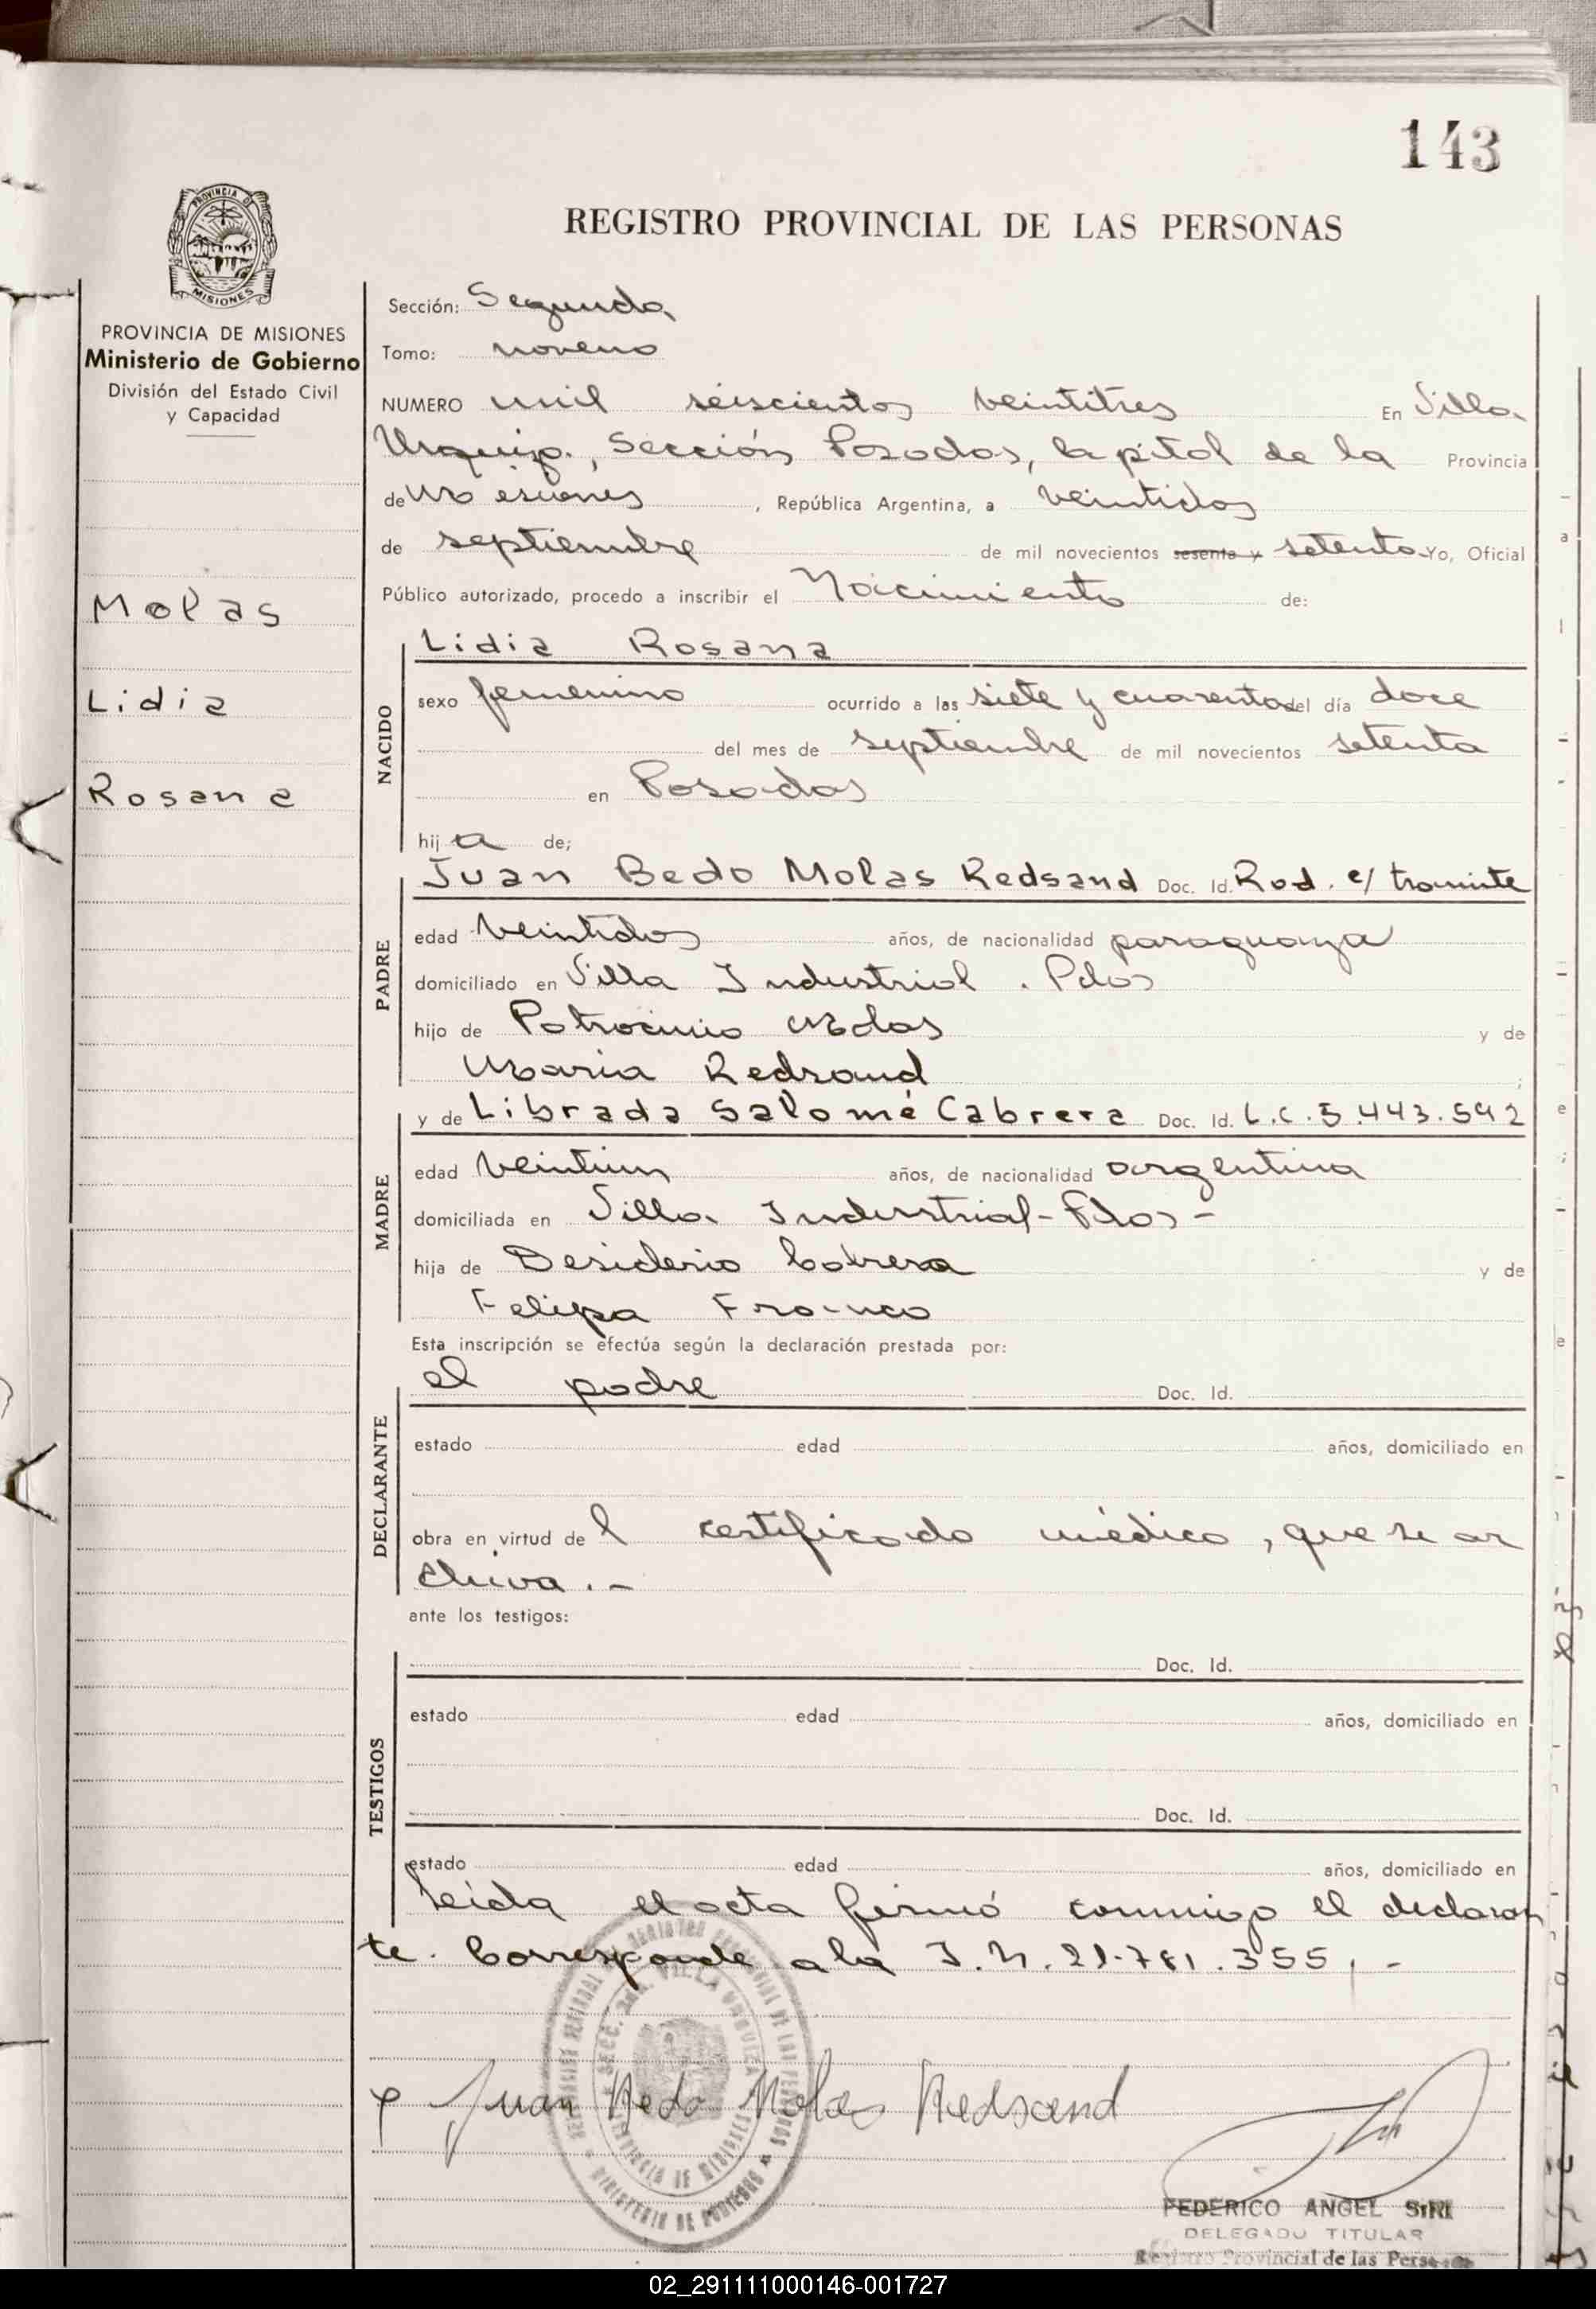 143
REGISTRO PROVINCIAL DE LAS PERSONAS
PROVINCIA DE MISIONES
Ministerio de Gobierno
División del Estado Civil
y Capacidad
Molas
Lidia
Rosana
Sección: Segunda
Tomo: noveno
NUMERO mil seiscientos veintitres En Villa
Urquiza, Sección Posadas, Capital de la Provincia
de Misiones, República Argentina, a veintidos
de septiembre de mil novecientos sesenta y setenta Yo, Oficial
Público autorizado, procedo a inscribir el Nacimiento de:
NACIDO
Lidia Rosana
sexo femenino ocurrido a las siete y cuarenta del día doce
del mes de septiembre de mil novecientos setenta
en Posadas
hija de;
PADRE
Juan Bedo Molas Redsand Doc. Id. Rad. e/ tramite
edad veintidos años, de nacionalidad paraguaya
domiciliado en Villa Industrial . Pdas
hijo de Patrocinio Molas y de
Maria Redsand ;
MADRE
y de Librada Salomé Cabrera Doc. Id. L.C. 5.443.592
edad veintiun años, de nacionalidad argentina
domiciliada en Villa Industrial - Pdas -
hija de Desiderio Cabrera y de
Felipa Franco
Esta inscripción se efectúa según la declaración prestada por:
DECLARANTE
el padre Doc. Id.
estado edad años, domiciliado en
obra en virtud del certificado médico, que se ar
chiva.-
ante los testigos:
TESTIGOS
Doc. Id.
estado edad años, domiciliado en
Doc. Id.
estado edad años, domiciliado en
Leída el acta firmó conmigo el declaran
te. Corresponde a la I.N. 21.781.355,-
Juan Bedo Molas Redsand
FEDERICO ANGEL SIRI
DELEGADO TITULAR
Registro Provincial de las Personas
02_291111000146-001727